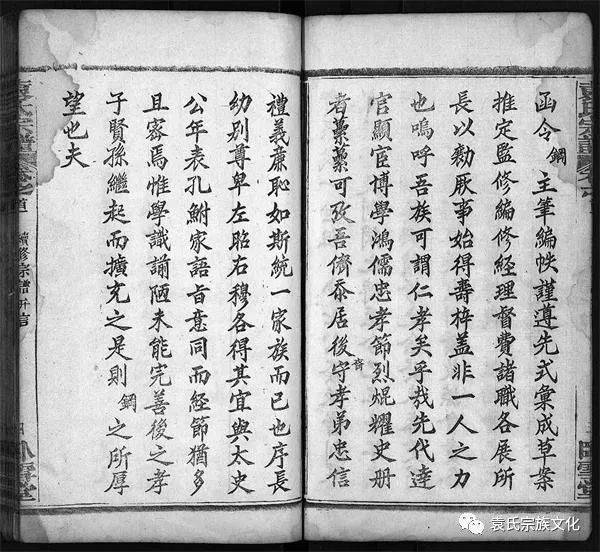 函令鋼主筆編帙謹遵先式彙成草案
推定監修編修經理督費諸職各展所
長以勷厥事始得壽梓蓋非一人之力
也嗚呼吾族可謂仁孝矣乎哉先代達
官顯宦博學鴻儒忠孝節烈焜耀史册
者藁藁可攷吾儕忝居後裔守孝弟忠信
禮義廉恥如斯統一家族而已也序長
幼别尊卑左昭右穆各得其宜與太史
公年表孔鮒家語旨意同而經節猶多
且密焉惟學識謭陋未能完善後之孝
子賢孫繼起而擴充之是則鋼之所厚
望也夫
卧雪堂
袁氏宗族文化